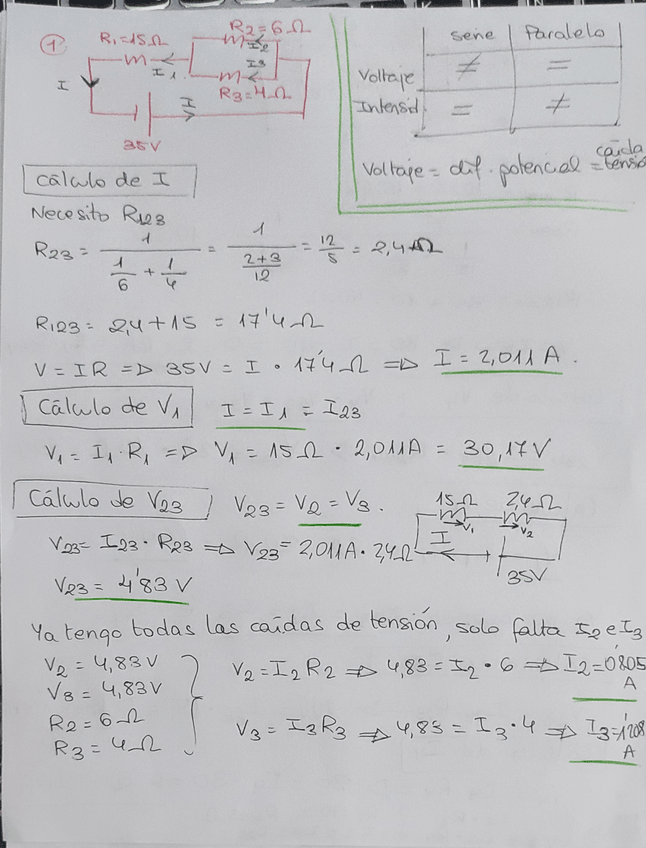 1
R1=15Ω
R2=6Ω
I2
I1
I3
I
R3=4Ω
I
35V
serie Paralelo
Voltaje ≠ =
Intensid = ≠
Voltaje = dif. potencial = caída tensió
Cálculo de I
Necesito R123
R23 = 1/(1/6 + 1/4) = 1/((2+3)/12) = 12/5 = 2,4Ω
R123 = 2,4+15 = 17'4Ω
V = IR => 35V = I · 17'4Ω => I = 2,011A.
Cálculo de V1 I = I1 = I23
V1 = I1·R1 => V1 = 15Ω · 2,011A = 30,17V
Cálculo de V23 V23 = V2 = V3.
15Ω 2,4Ω
V1 V2
I
35V
V23 = I23·R23 => V23 = 2,011A · 2,4Ω
V23 = 4'83 V
Ya tengo todas las caídas de tensión, solo falta I2 e I3
V2 = 4,83V
V3 = 4,83V
R2 = 6Ω
R3 = 4Ω
V2 = I2R2 => 4,83 = I2·6 => I2 = 0'805 A
V3 = I3R3 => 4,83 = I3·4 => I3 = 1'208 A